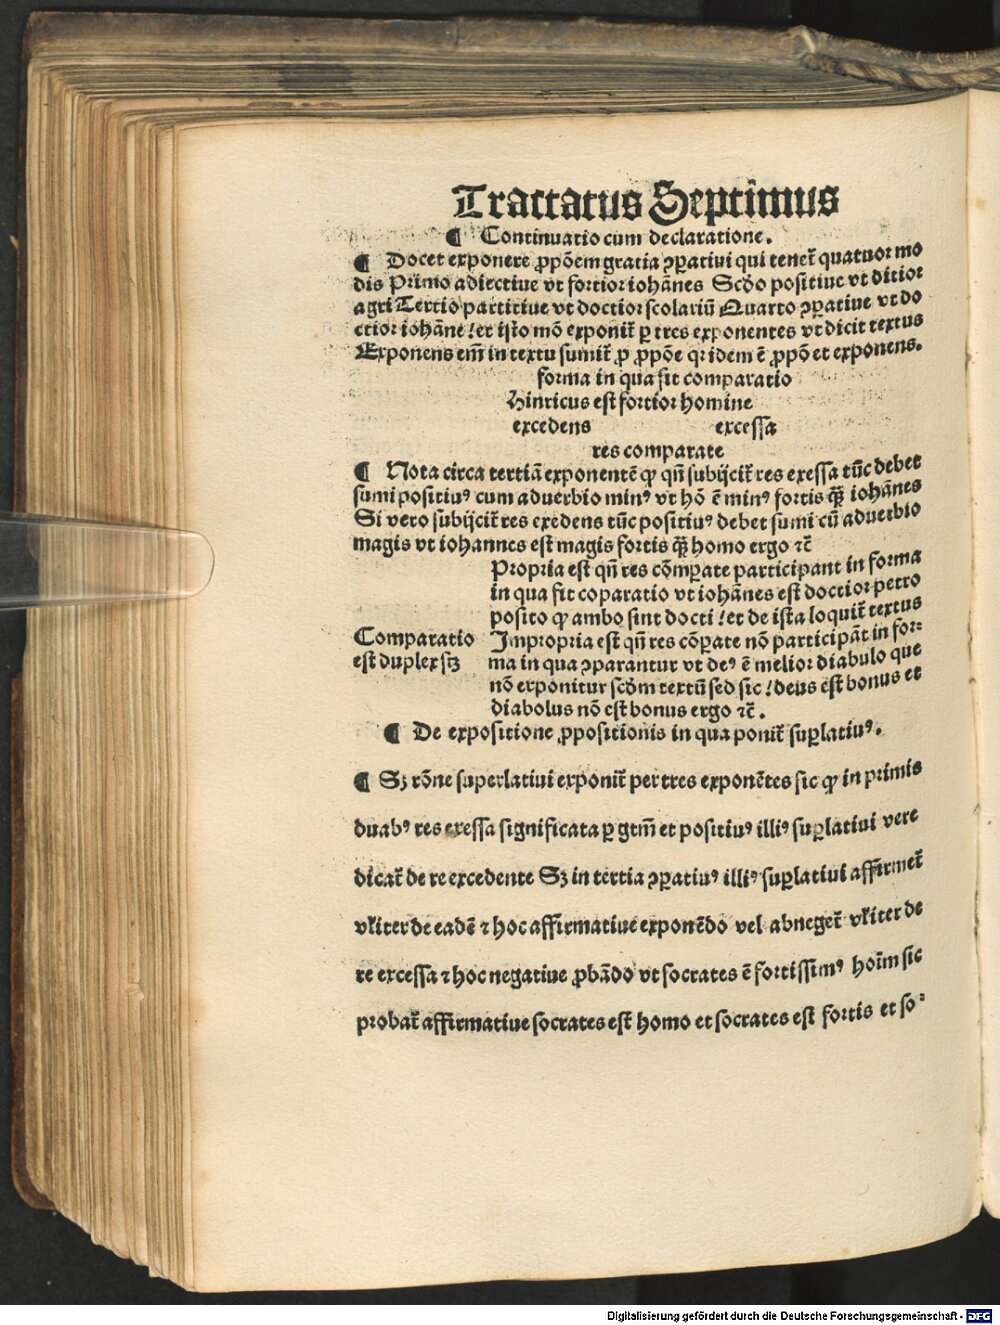 Tractatus Septimus
¶ Continuatio cum declaratione.
¶ Docet exponere ꝓpõem gratia ꝯꝑatiui qui tenet᷑ quatuor mo
dis Primo adiectiue vt fortior iohãnes Scd̃o positiue vt ditior
agri Tertio partitiue vt doctior scolariũ Quarto ꝯꝑatiue vt do
ctior iohãne / et isto mõ exponit᷑ ꝑ tres exponentes vt dicit textus
Exponens em̃ in textu sumit᷑ ꝓ ꝓpõe qꝛ idem ẽ ꝓpõ et exponens.
forma in qua fit comparatio
Hinricus est fortior homine
excedens excessa
res comparate
¶ Nota circa tertiã exponentẽ ꝙ qñ subijcit᷑ res exessa tũc debet
sumi positiuꝰ cum aduerbio minꝰ vt hõ ẽ minꝰ fortis q̃ꝫ iohãnes
Si vero subijcit᷑ res exedens tũc positiuꝰ debet sumi cũ aduerbio
magis vt iohannes est magis fortis q̃ꝫ homo ergo ⁊c̃
Propria est qñ res cõmꝑate participant in forma
in qua fit coparatio vt iohãnes est doctior petro
posito ꝙ ambo sint docti / et de ista loquit᷑ textus
Comparatio Impropria est qñ res cõꝑate nõ participãt in for⸗
est duplex sꝫ ma in qua ꝯparantur vt deꝰ ẽ melior diabulo que
nõ exponitur scd̃m textũ sed sic / deus est bonus et
diabolus nõ est bonus ergo ⁊c̃.
¶ De expositione ꝓpositionis in qua ponit᷑ suꝑlatiuꝰ.
¶ Sꝫ rõne superlatiui exponit᷑ per tres exponẽtes sic ꝙ in primis
duabꝰ res exessa significata ꝑ gtm̃ et positiuꝰ illiꝰ suꝑlatiui vere
dicat᷑ de re excedente Sꝫ in tertia ꝯꝑatiuꝰ illiꝰ suꝑlatiui affirmet᷑
vl̃iter de eadẽ ⁊ hoc affirmatiue exponẽdo vel abneget᷑ vl̃iter de
re excessa ⁊ hoc negatiue ꝓbãdo vt socrates ẽ fortissimꝰ hoĩm sic
probat᷑ affirmatiue socrates est homo et socrates est fortis et soꝛ
Digitalisierung gefördert durch die Deutsche Forschungsgemeinschaft - DFG